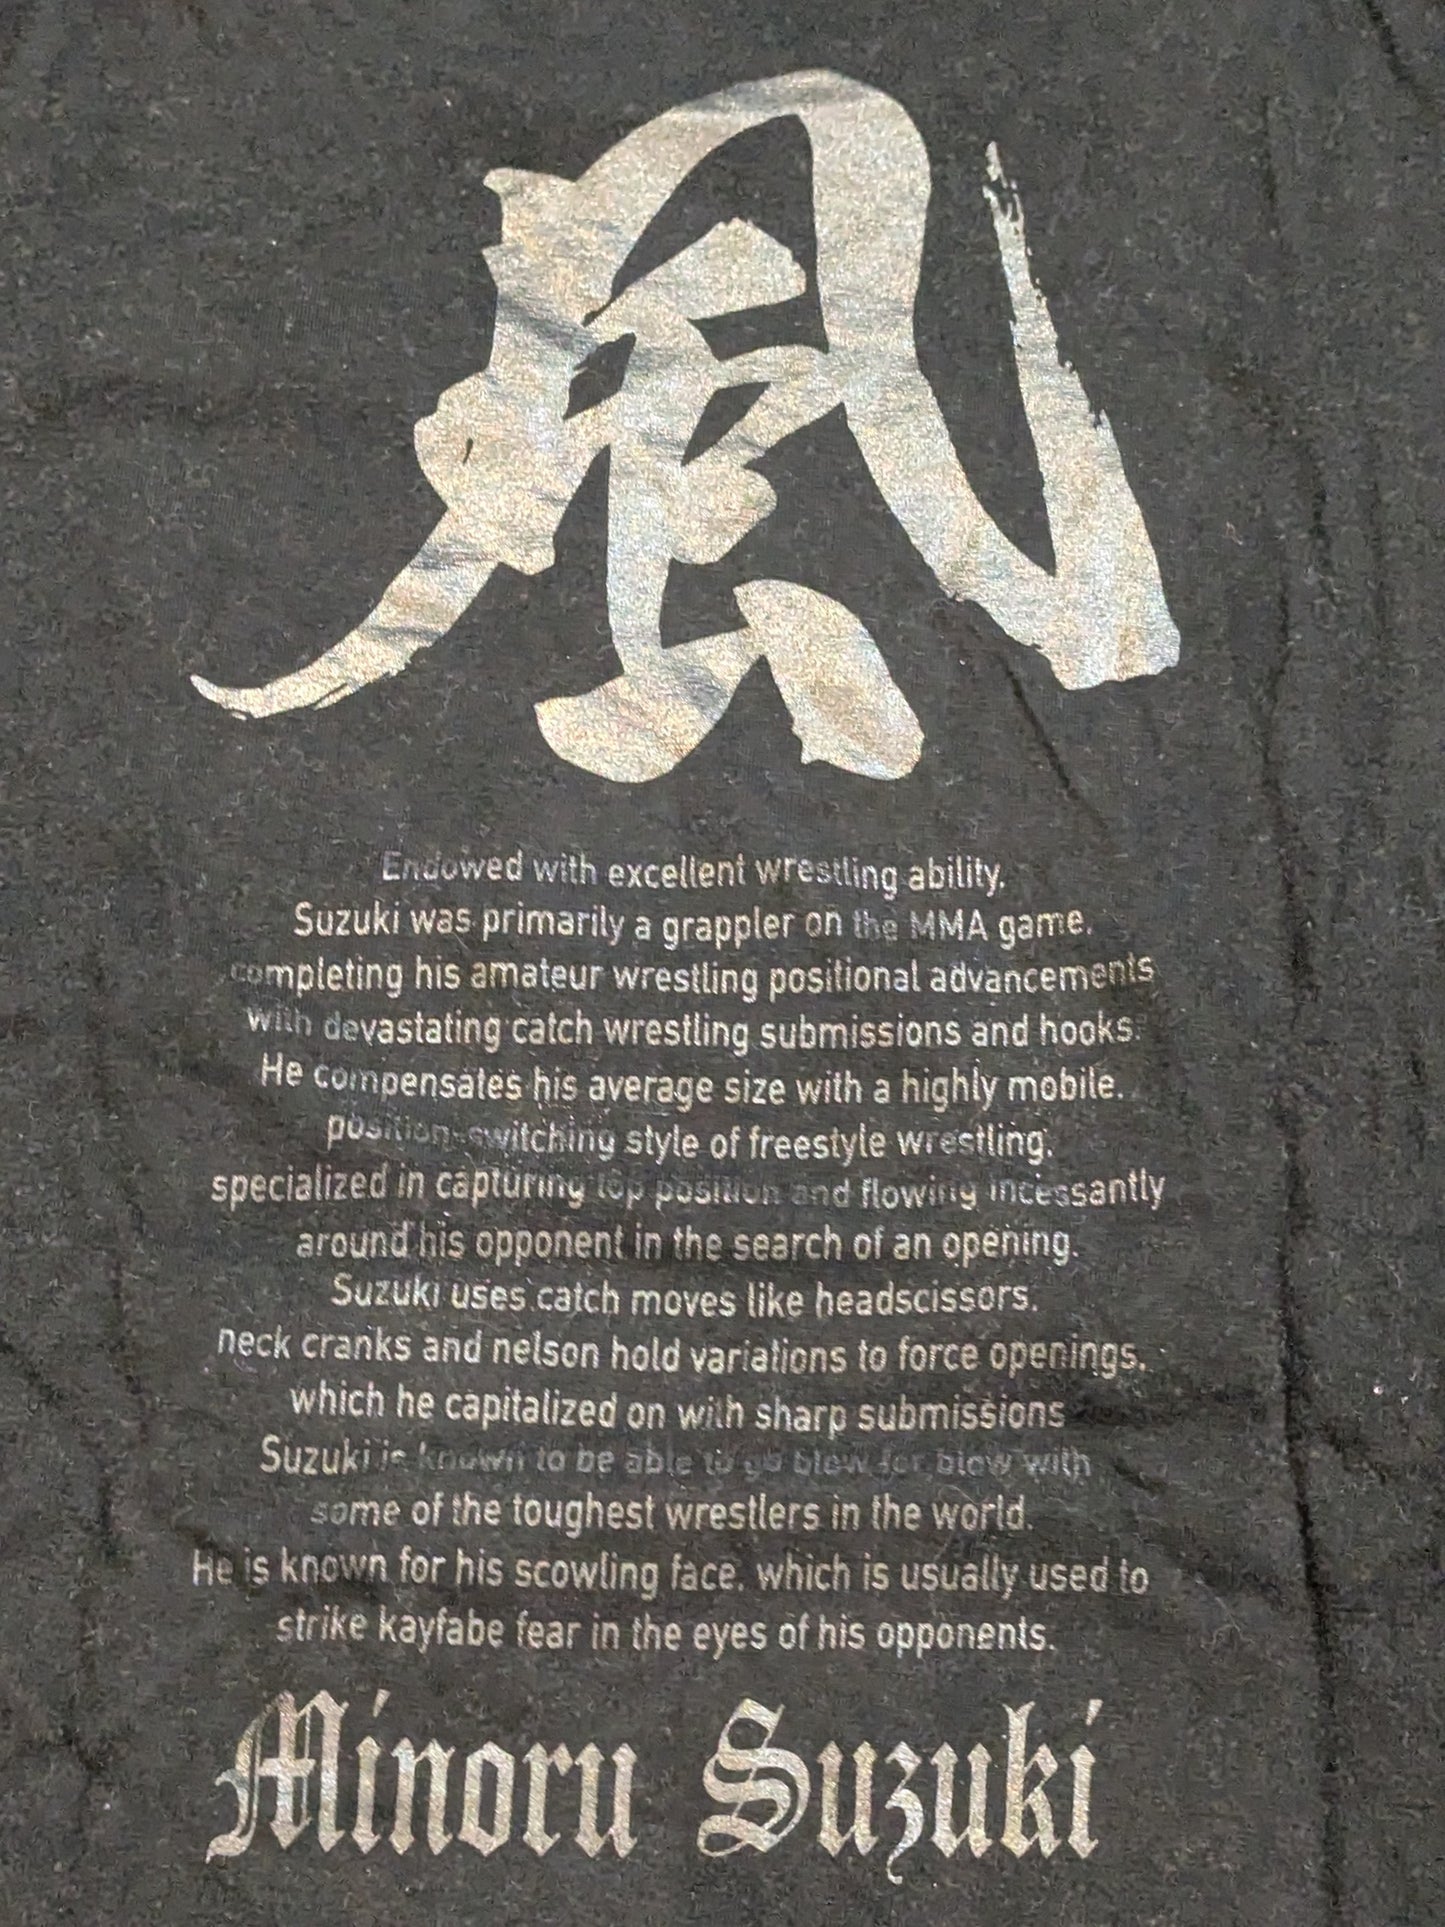 風
Endowed with excellent wrestling ability.
Suzuki was primarily a grappler on the MMA game.
completing his amateur wrestling positional advancements
with devastating catch wrestling submissions and hooks.
He compensates his average size with a highly mobile.
position-switching style of freestyle wrestling.
specialized in capturing top position and flowing incessantly
around his opponent in the search of an opening.
Suzuki uses catch moves like headscissors.
neck cranks and nelson hold variations to force openings.
which he capitalized on with sharp submissions
Suzuki is known to be able to go blow for blow with
some of the toughest wrestlers in the world.
He is known for his scowling face. which is usually used to
strike kayfabe fear in the eyes of his opponents.
Minoru Suzuki